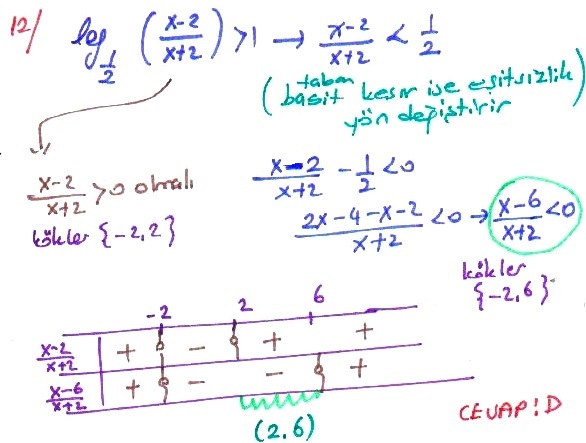 12/ log_{1/2} ( (x-2)/(x+2) ) > 1 → (x-2)/(x+2) < 1/2
( taban basit kesir ise eşitsizlik
yön değiştirir )
(x-2)/(x+2) > 0 olmalı
kökler {-2,2}
(x-2)/(x+2) - 1/2 < 0
(2x-4-x-2)/(x+2) < 0 → (x-6)/(x+2) < 0
kökler
{-2,6}
-2 2 6
(x-2)/(x+2) + - + +
(x-6)/(x+2) + - - +
(2,6)
CEVAP:D